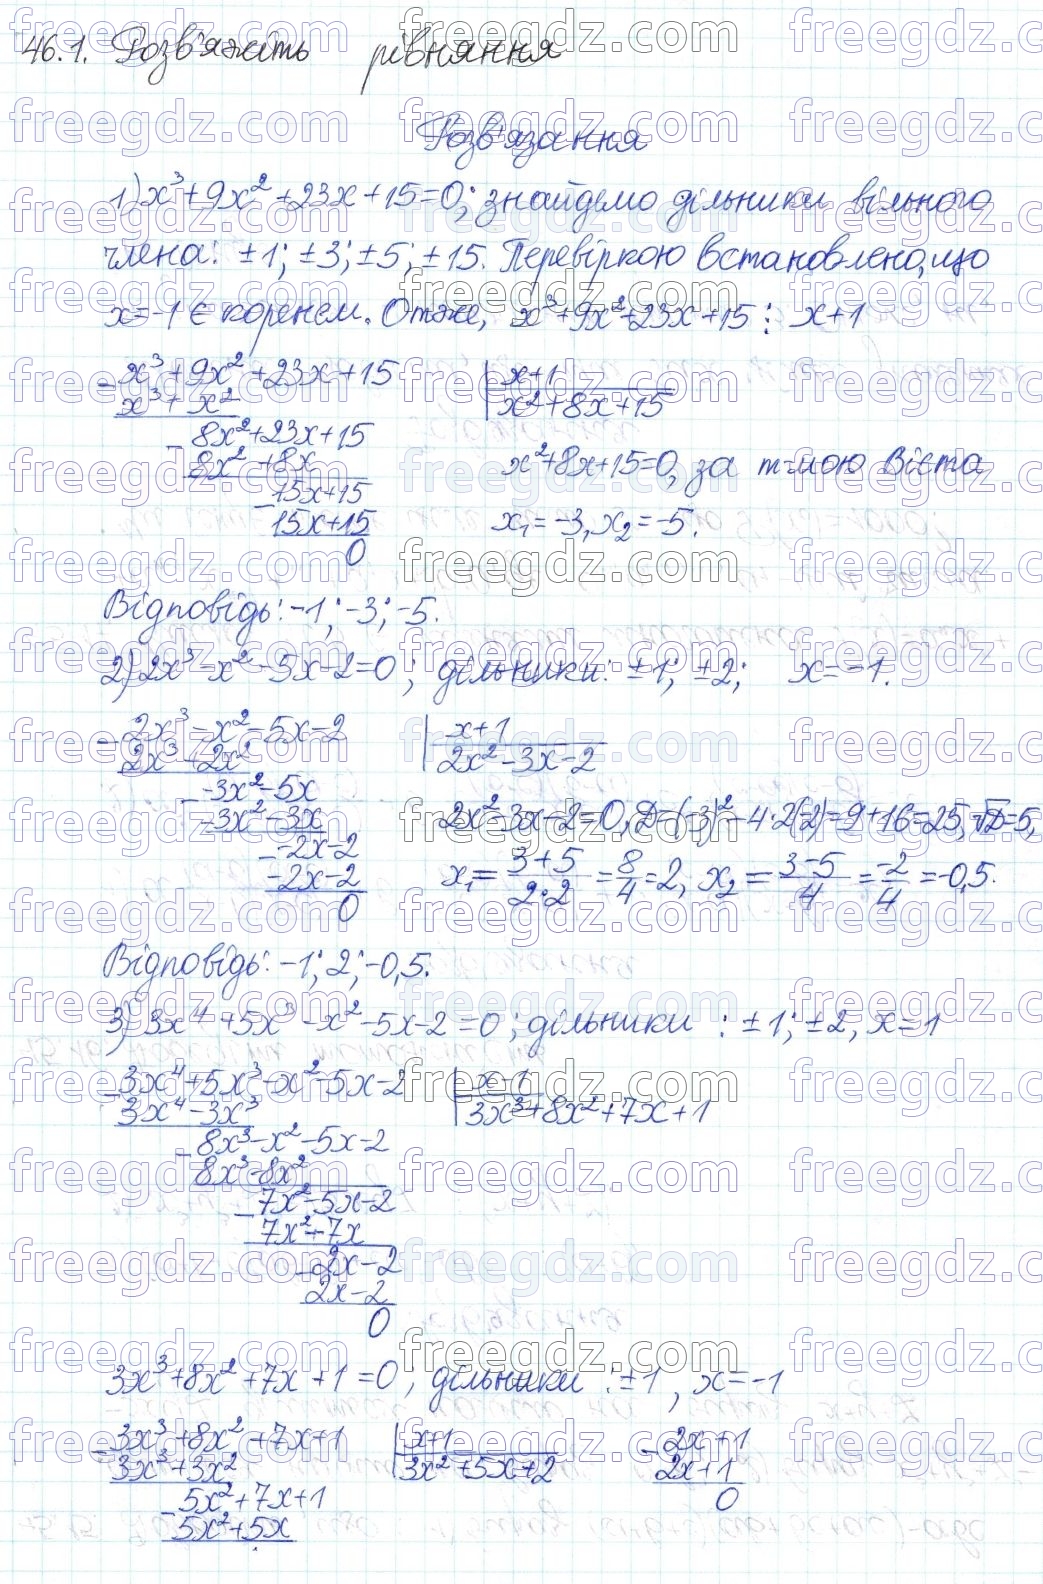 46.1. Розв'яжіть рівняння
Розв'язання
1) x³+9x²+23x+15=0; знайдемо дільники вільного
члена: ±1; ±3; ±5; ±15. Перевіркою встановлено, що
x=-1 є коренем. Отже, x³+9x²+23x+15 ⋮ x+1
- x³+9x²+23x+15 | x+1
x³+x² | x²+8x+15
- 8x²+23x+15
8x²+8x x²+8x+15=0, за т-мою Вієта
- 15x+15
15x+15 x₁=-3, x₂=-5.
0
Відповідь: -1; -3; -5.
2) 2x³-x²-5x-2=0; дільники: ±1; ±2; x=-1.
- 2x³-x²-5x-2 | x+1
2x³+2x² | 2x²-3x-2
- -3x²-5x
-3x²-3x 2x²-3x-2=0, D=(-3)²-4·2(-2)=9+16=25, √D=5,
- -2x-2
-2x-2 x₁=(3+5)/(2·2)=8/4=2, x₂=(3-5)/4=-2/4=-0,5.
0
Відповідь: -1; 2; -0,5.
3) 3x⁴+5x³-x²-5x-2=0; дільники: ±1; ±2, x=1
- 3x⁴+5x³-x²-5x-2 | x-1
3x⁴-3x³ | 3x³+8x²+7x+1
- 8x³-x²-5x-2
8x³-8x²
- 7x²-5x-2
7x²-7x
- 2x-2
2x-2
0
3x³+8x²+7x+1=0, дільники: ±1, x=-1
- 3x³+8x²+7x+1 | x+1 - 2x+1
3x³+3x² | 3x²+5x+2 2x+1
- 5x²+7x+1 0
5x²+5x